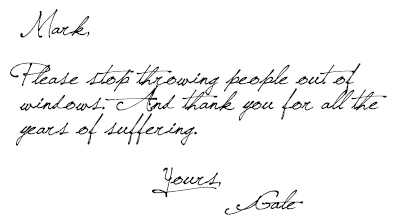 Mark,
Please stop throwing people out of
windows. And thank you for all the
years of suffering.
Yours,
Gale